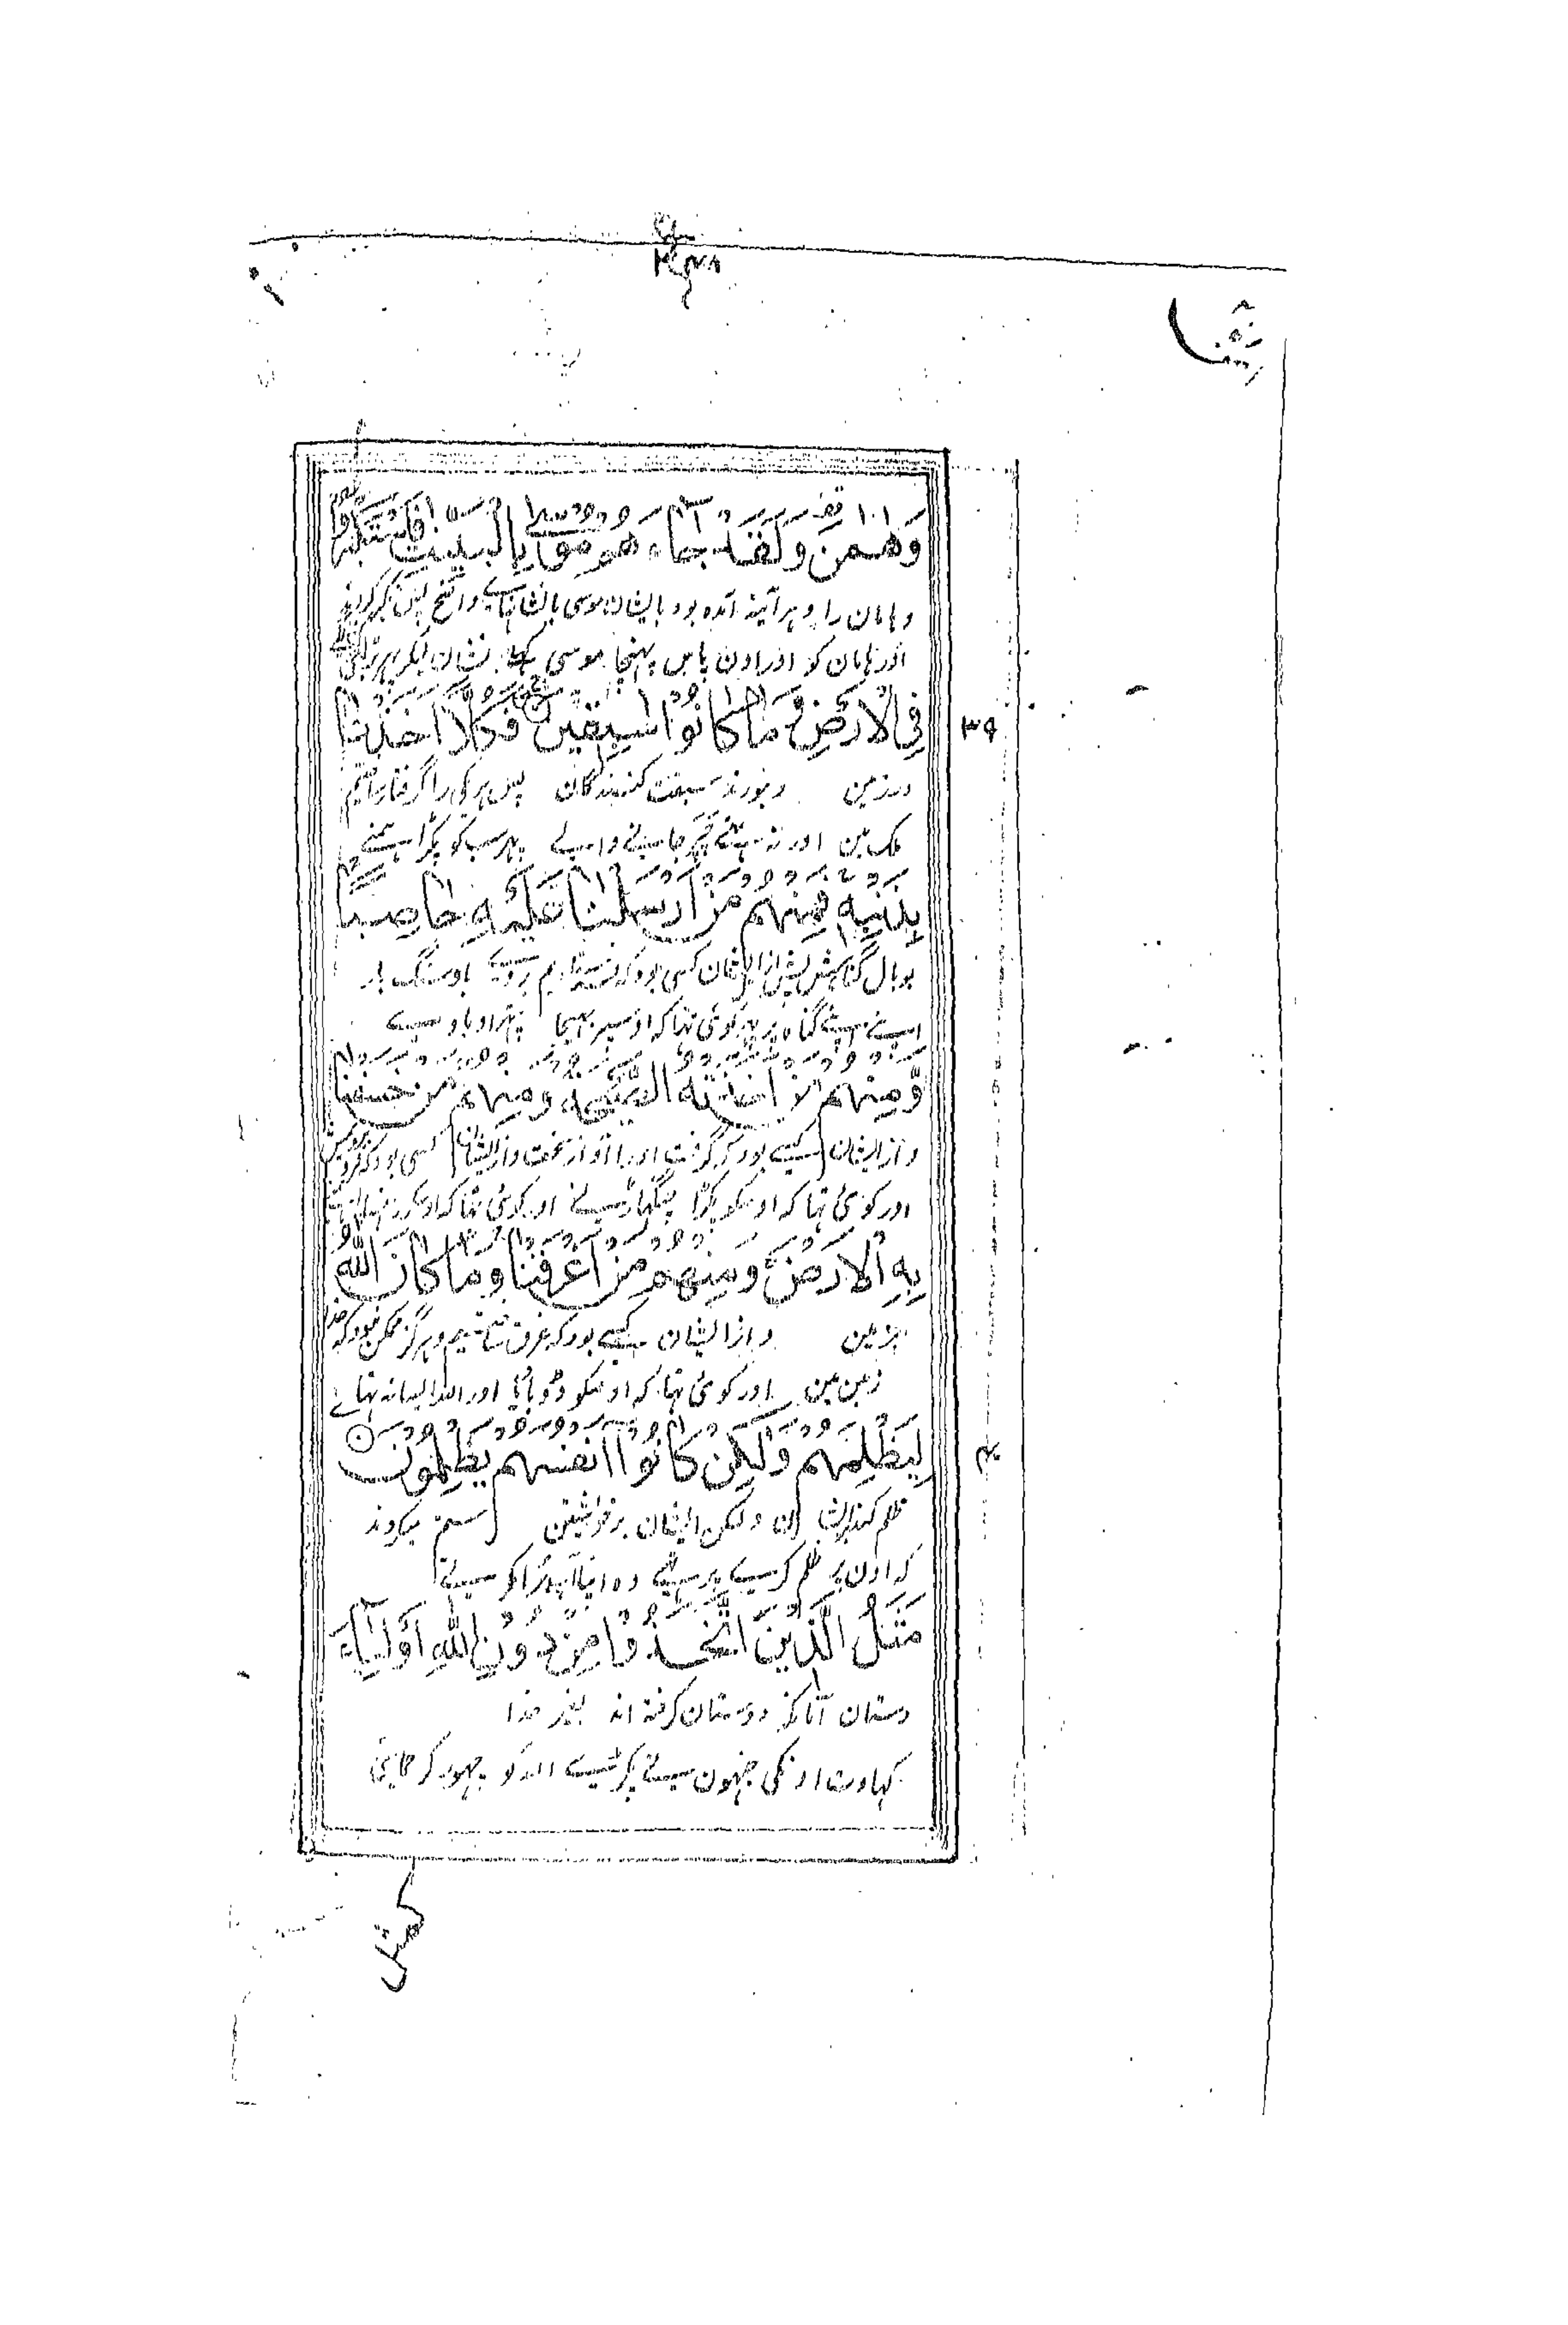 وَهَامٰنَ وَلَقَدْ جَآءَهُمْ مُوْسٰى بِالْبَيِّنٰتِ فَاسْتَكْبَرُوْا
و هامان را و هر آئینه آمده بود بایشان موسی بانشانہاے واضح پس تکبر کردند
اور ہامان کو اور اون پاس پہنچا موسی کہلے نشان لیکر پہر بڑائی
فِي الْاَرْضِ وَمَا كَانُوْا سٰبِقِيْنَ فَكُلًّا اَخَذْنَا
۳۹
در زمین و نبودند سبقت کنندگان پس هر یکی را گرفتار ساختیم
ملک مین اور نہ تہے جانے والے پہر سب کو پکڑا ہمنے
بِذَنْبِهٖ فَمِنْهُمْ مَنْ اَرْسَلْنَا عَلَيْهِ حَاصِبًا
بوبال گناهش پس از ایشان کسی بود که فرستادیم بروے باد سنگ بار
اپنے اپنے گناہ پر پہر کوئی تہا کہ اوسپر بہیجا پتہراو باو سے
وَّمِنْهُمْ مَّنْ اَخَذَتْهُ الصَّيْحَةُ وَمِنْهُمْ مَّنْ خَسَفْنَا
و از ایشان کسے بود که گرفت اورا آواز سخت و از ایشان کسی بود که فرو
اور کوئی تہا کہ اوسکو پکڑا چنگہاڑ نے اور کوئی تہا کہ اوسکو
بِهِ الْاَرْضَ وَمِنْهُمْ مَّنْ اَغْرَقْنَا وَمَا كَانَ اللّٰهُ
بزمین و از ایشان کسے بود که غرق ساختیم و هرگز ممکن نبود که خدا
زمین مین اور کوئی تہا کہ اوسکو ڈوبایا اور اللہ ایسا نہ تہا
لِيَظْلِمَهُمْ وَلٰكِنْ كَانُوْا اَنْفُسَهُمْ يَظْلِمُوْنَ
۴۰
ظلم کند بر ایشان ولکن ایشان بر خویشتن ستم میکردند
کہ اون پر ظلم کرے پر تہے وہ اپنا آپ برا کرتے
مَثَلُ الَّذِيْنَ اتَّخَذُوْا مِنْ دُوْنِ اللّٰهِ اَوْلِيَآءَ
داستان آنانکه دوستان گرفته اند بغیر خدا
کہاوت اونکی جنہون نے پکڑے اللہ کو چہوڑ کر حمایتی
كمثل